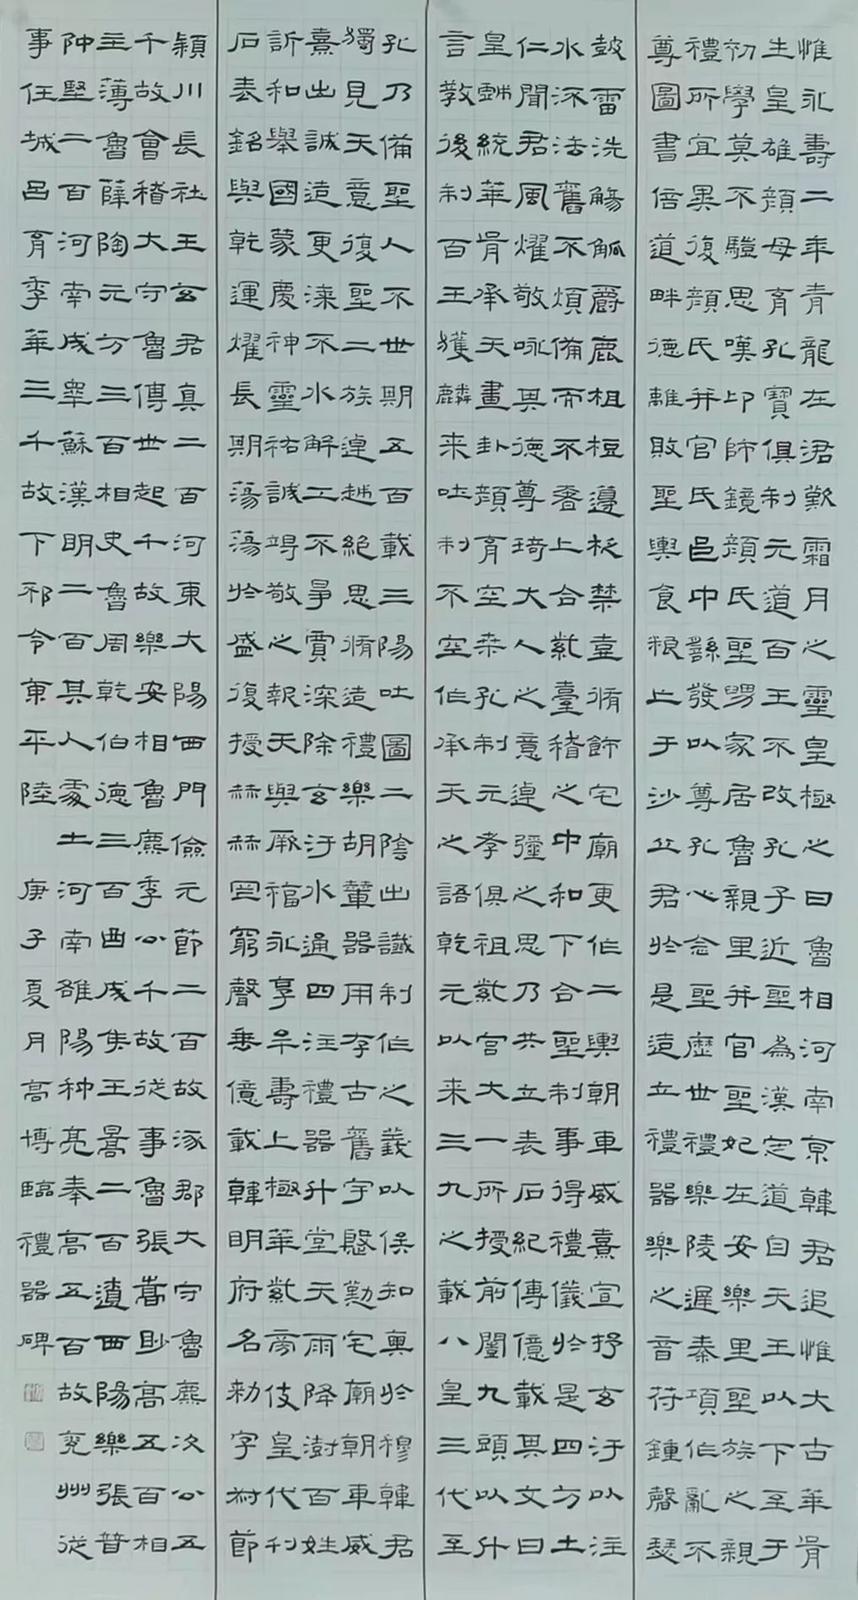 惟永壽二年青龍在涒歎霜月之靈皇極之日魯相河南京韓君追惟大古華胥
生皇雄顏母育孔寶俱制元道百王不改孔子近聖為漢定道自天王以下至于
初學莫不驥思嘆卬師鏡顏氏聖舅家居魯親里并官聖妃在安樂里聖族之親
禮所宜異復顏氏并官氏邑中繇發以尊孔心念聖歷世禮樂陵遲秦項作亂不
尊圖書倍道畔德離敗聖輿食糧亡于沙丘君於是造立禮器樂之音符鍾磬瑟
鼓雷洗觴觚爵鹿柤梪籩柉禁壺脩飾宅廟更作二輿朝車威熹宣抒玄汙以注
水流法舊不煩備而不奢上合紫臺稽之中和下合聖制事得禮儀於是四方土
仁聞君風燿敬咏其德尊琦大人之意逴彊之思乃共立表石紀傳億載其文曰
皇戲統華胥承天畫卦顏育空桑孔制元孝俱祖紫宮大一所授前闓九頭以什
言教後制百王獲麟來吐制不空作承天之語乾元以來三九之載八皇三代至
孔乃備聖人不世期五百載三陽吐圖二陰出讖制作之義以俟知奧於穆韓君
獨見天意復聖二族逴越絕思脩造禮樂胡輦器用存古舊宇慇勤宅廟朝車威
熹出誠造更漆不水解工不爭賈深除玄汙水通四注禮器升堂天雨降澍百姓
訢和舉國蒙慶神靈祐誠竭敬之報天與厥福永享牟壽上極華紫旁伎皇代刊
石表銘與乾運燿長期蕩蕩於盛復授赫赫罔窮聲垂億載韓明府名勑字叔節
潁川長社王玄君真二百河東大陽西門儉元節二百故涿郡大守魯麃次公五
千故會稽大守魯傅世起千故樂安相魯麃季公千故從事魯張嵩眇高五百相
主薄魯薛陶元方三百相史魯周乾伯德三百酉成集王暠二百遺西陽樂張普
仲堅二百河南成睪蘇漢明二百其人處士河南雒陽种亮奉高五百故兗州從
事任城呂育季華三千故下邳令東平陸 庚子夏月高博臨禮器碑